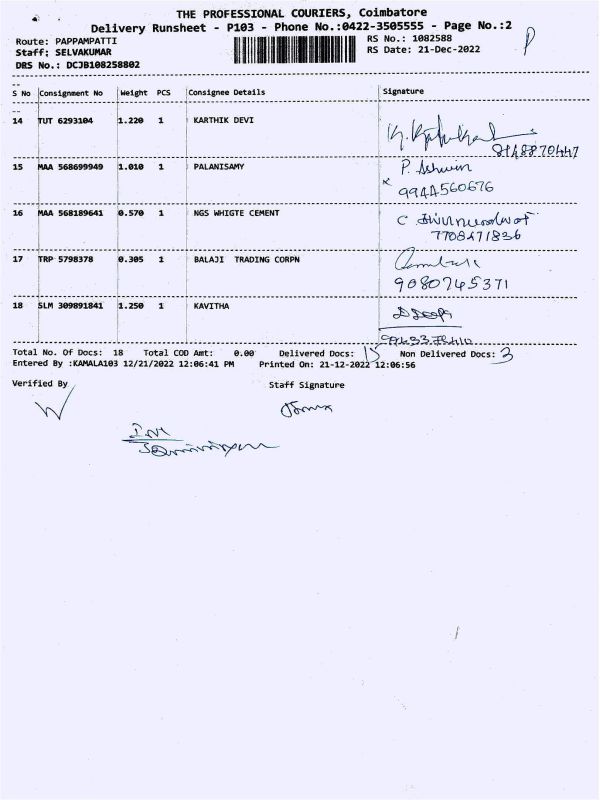 THE PROFESSIONAL COURIERS, Coimbatore
Delivery Runsheet - P103 - Phone No.:0422-3505555 - Page No.:2
Route: PAPPAMPATTI RS No.: 1082588
Staff: SELVAKUMAR RS Date: 21-Dec-2022
DRS No.: DCJB108258802
P
S No Consignment No Weight PCS Consignee Details Signature
14 TUT 6293104 1.220 1 KARTHIK DEVI
15 MAA 568699949 1.010 1 PALANISAMY P. Ashwin
9944560676
16 MAA 568189641 0.570 1 NGS WHIGTE CEMENT C
7708471836
17 TRP 5798378 0.305 1 BALAJI TRADING CORPN
9080745371
18 SLM 309891841 1.250 1 KAVITHA
Total No. Of Docs: 18 Total COD Amt: 0.00 Delivered Docs: 15 Non Delivered Docs: 3
Entered By :KAMALA103 12/21/2022 12:06:41 PM Printed On: 21-12-2022 12:06:56
Verified By Staff Signature